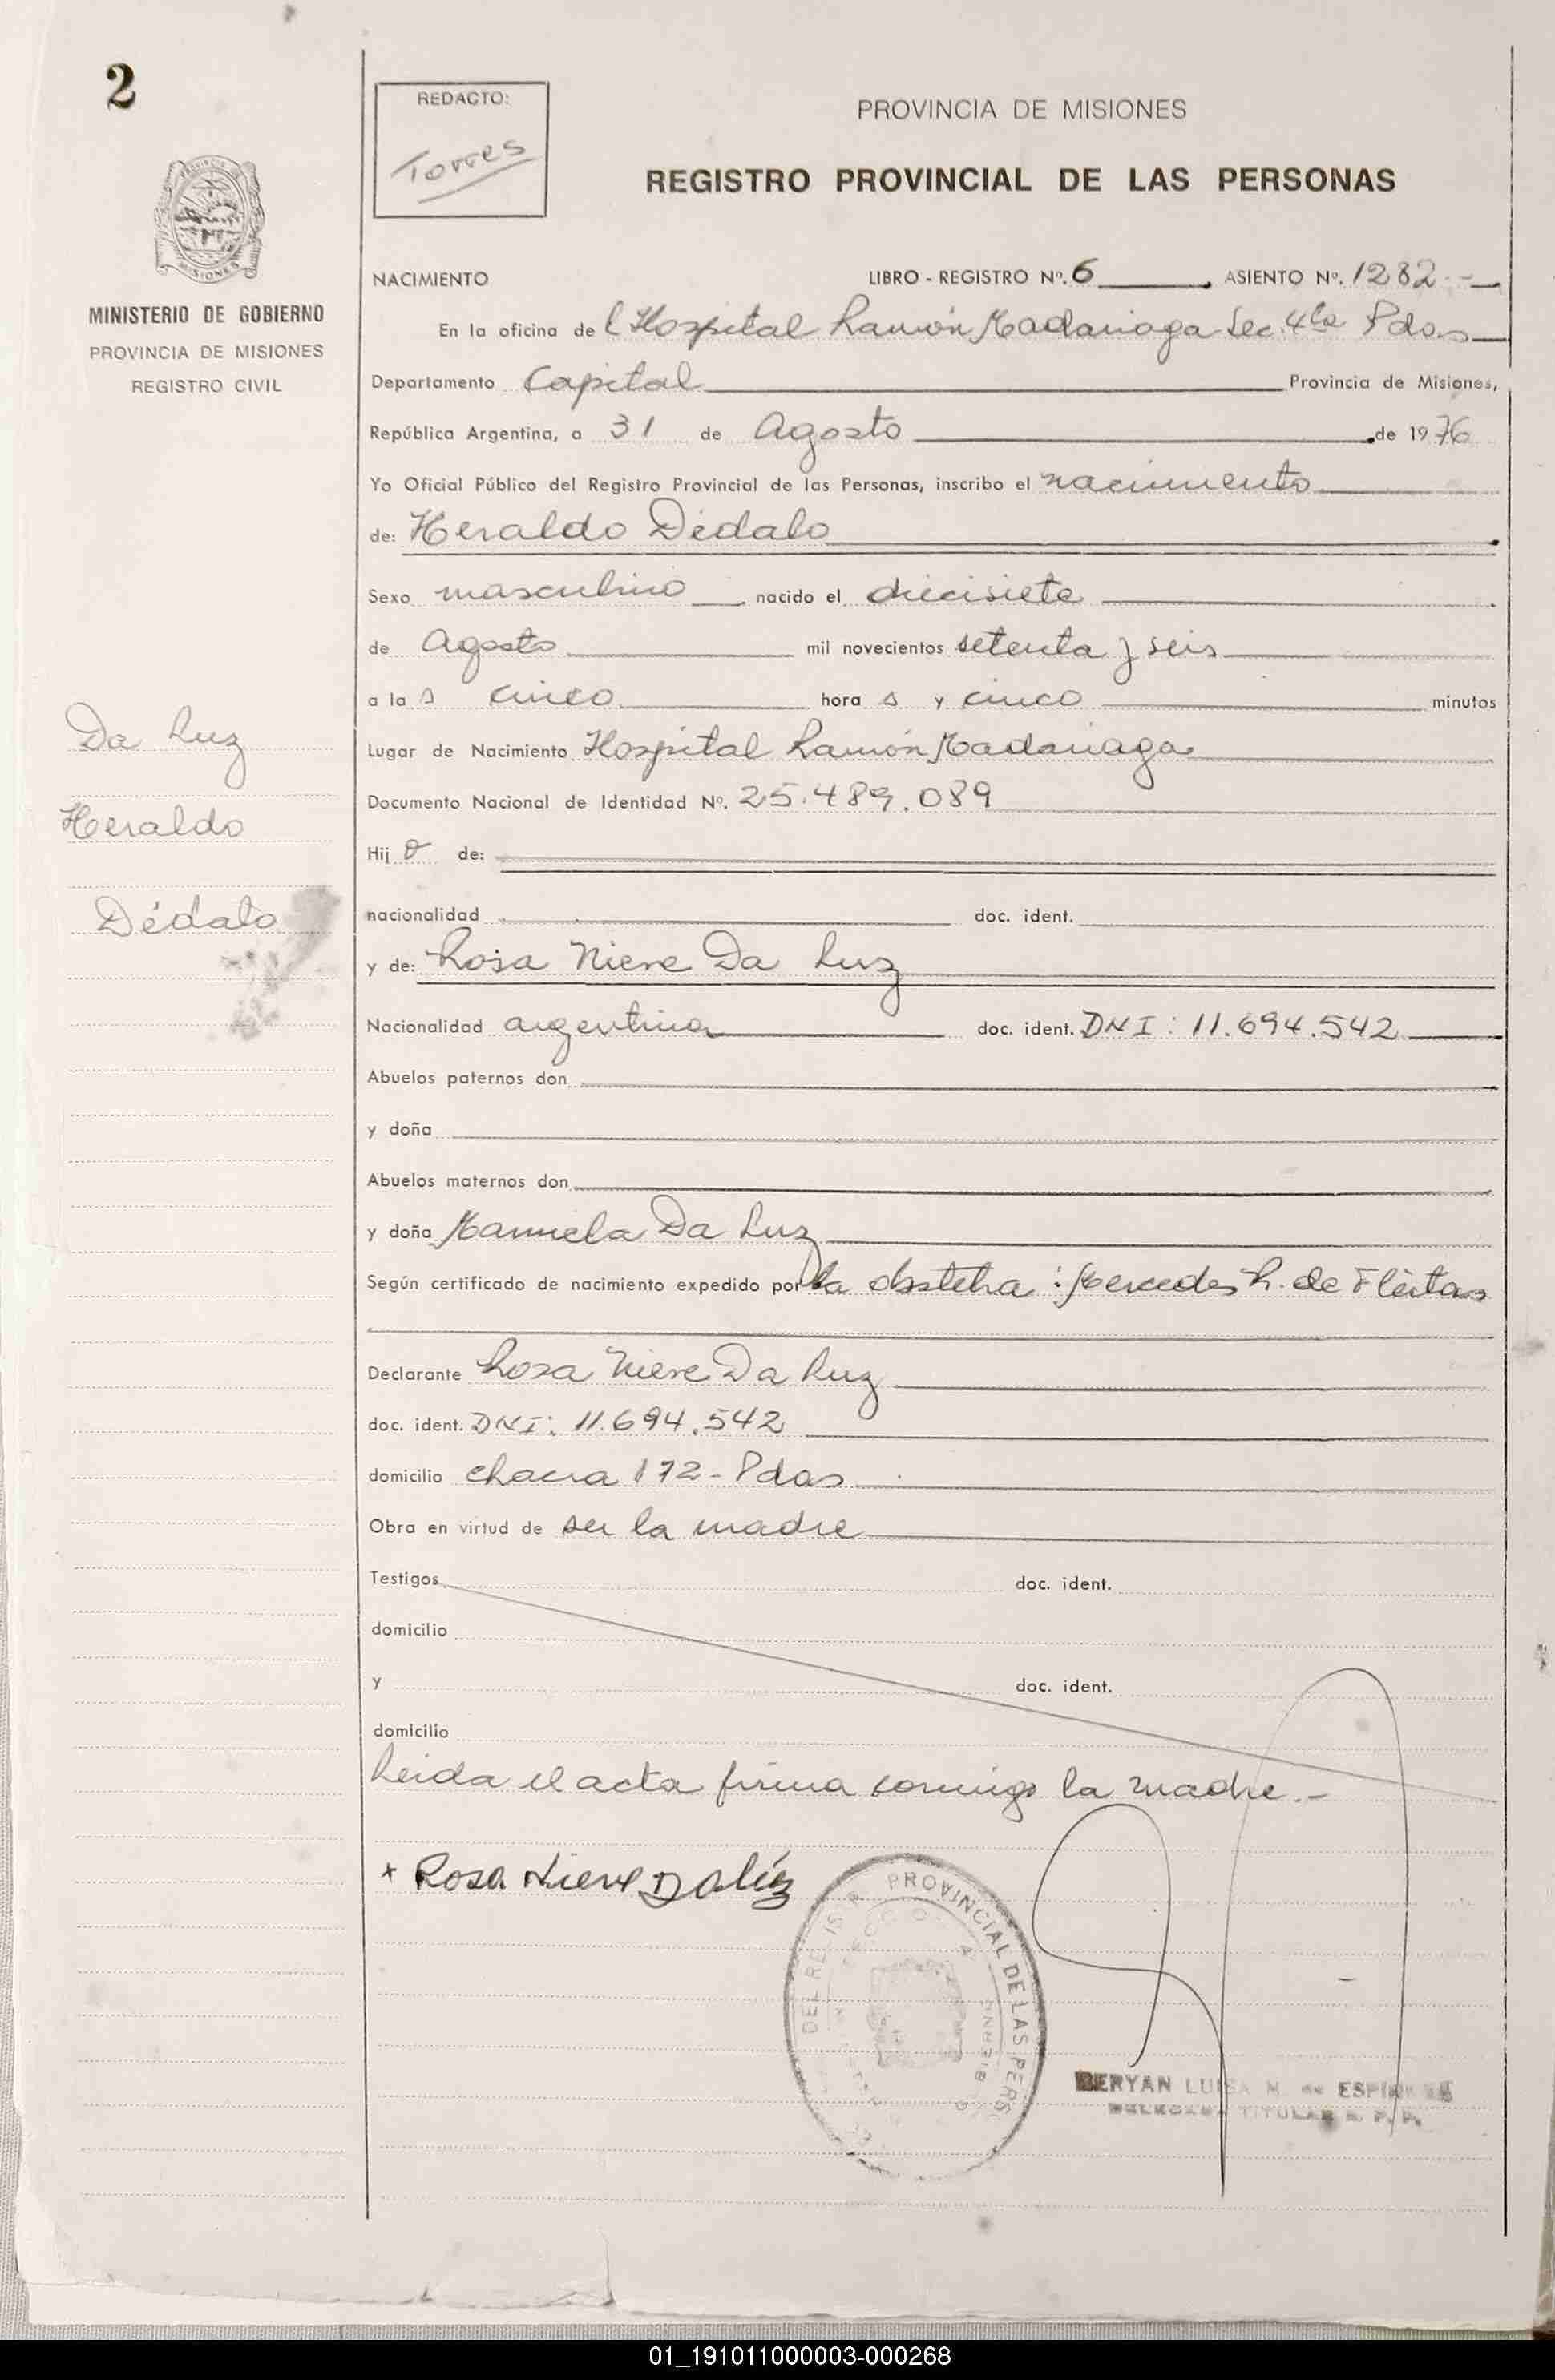 2
REDACTO:
Torres
PROVINCIA DE MISIONES
REGISTRO PROVINCIAL DE LAS PERSONAS
MISIONES
MINISTERIO DE GOBIERNO
PROVINCIA DE MISIONES
REGISTRO CIVIL
NACIMIENTO LIBRO - REGISTRO Nº. 6 ASIENTO Nº. 1282
En la oficina del Hospital Ramón Madariaga Sec. 4ta Pdas
Departamento Capital Provincia de Misiones,
República Argentina, a 31 de Agosto de 1976
Yo Oficial Público del Registro Provincial de las Personas, inscribo el nacimiento
de: Heraldo Dédalo
Sexo masculino nacido el diecisiete
de Agosto mil novecientos setenta y seis
a las cinco horas y cinco minutos
Lugar de Nacimiento Hospital Ramón Madariaga
Documento Nacional de Identidad Nº. 25.489.089
Hijo de:
nacionalidad doc. ident.
y de: Rosa Nieve Da Luz
Nacionalidad argentina doc. ident. DNI: 11.694.542
Abuelos paternos don
y doña
Abuelos maternos don
y doña Manuela Da Luz
Según certificado de nacimiento expedido por la obstetra: Mercedes R. de Fleitas
Declarante Rosa Nieve Da Luz
doc. ident. DNI: 11.694.542
domicilio chacra 172 - Pdas
Obra en virtud de ser la madre
Testigos doc. ident.
domicilio
y doc. ident.
domicilio
Leida el acta firma conmigo la madre.-
x Rosa Nieve Da Luz
PROVINCIAL DE LAS PERS
BERYAN LUISA M. de
TITULAR
Da Luz
Heraldo
Dédalo
01_191011000003-000268